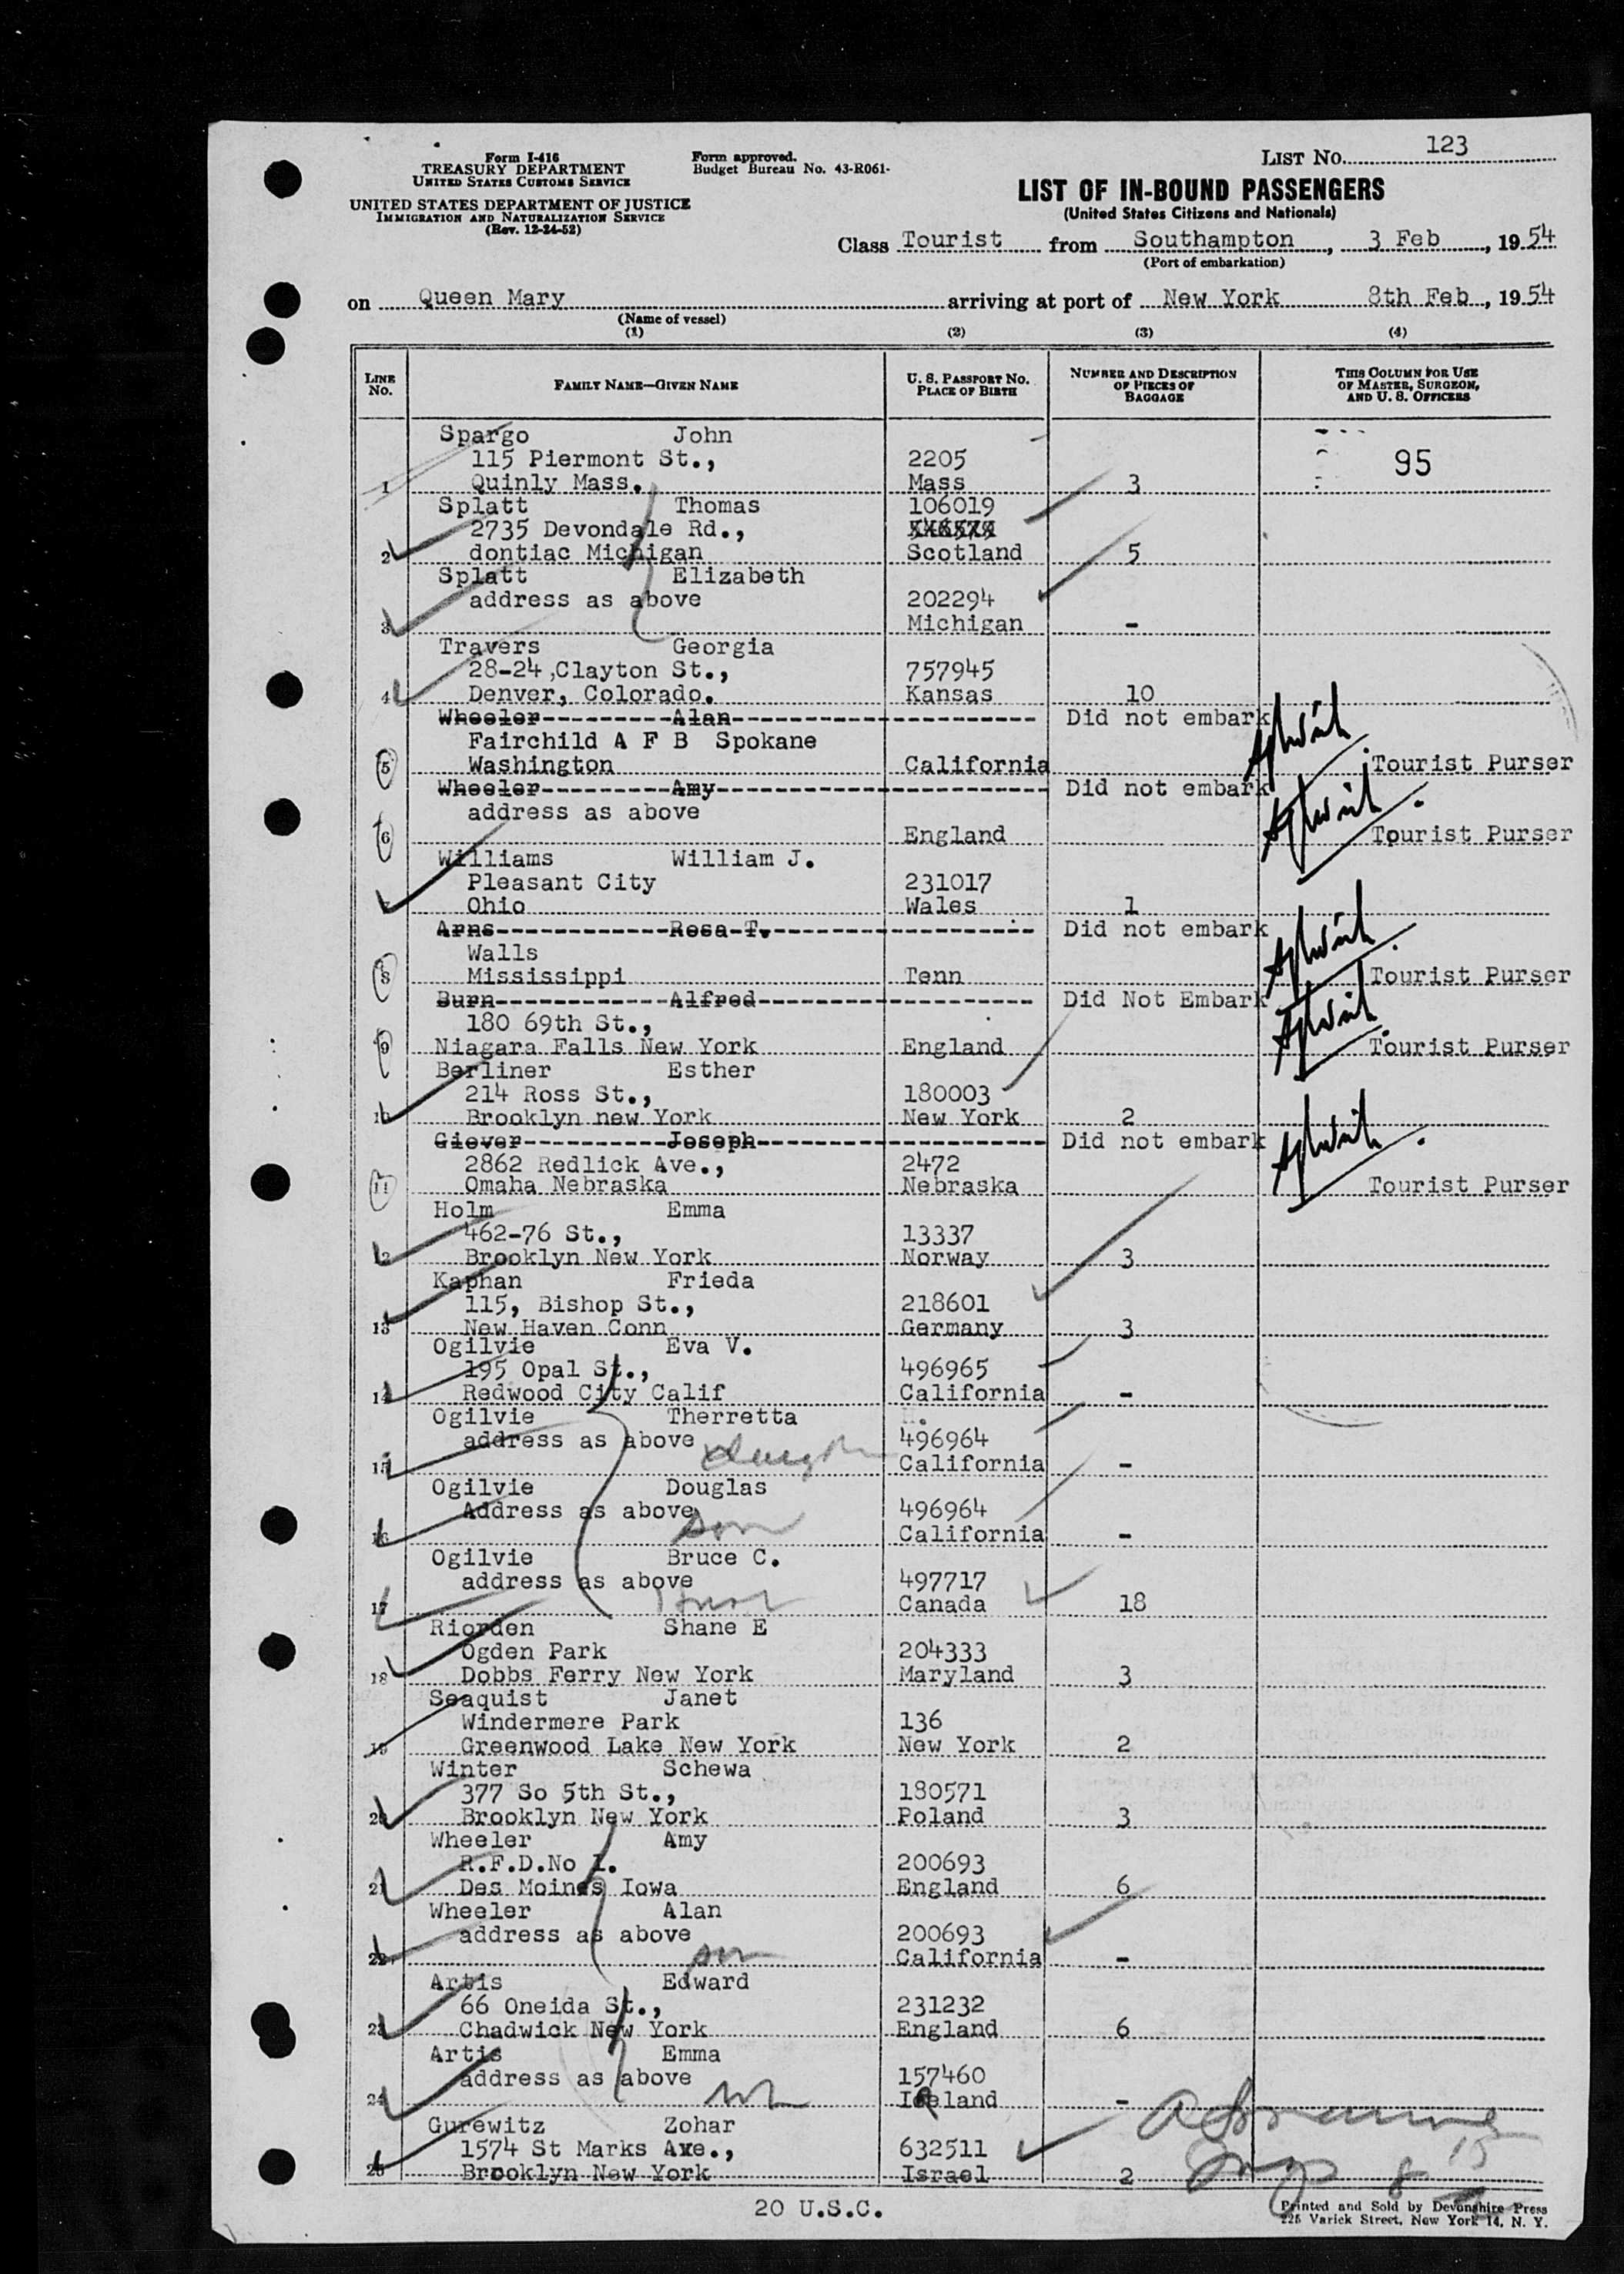 Form I-416
TREASURY DEPARTMENT
UNITED STATES CUSTOMS SERVICE
UNITED STATES DEPARTMENT OF JUSTICE
IMMIGRATION AND NATURALIZATION SERVICE
(Rev. 12-24-52)
Form approved.
Budget Bureau No. 43-R061-
LIST NO. 123
LIST OF IN-BOUND PASSENGERS
(United States Citizens and Nationals)
Class Tourist from Southampton, 3 Feb, 1954
(Port of embarkation)
on Queen Mary arriving at port of New York 8th Feb, 1954
(Name of vessel)
(1) (2) (3) (4)
LINE NO. FAMILY NAME—GIVEN NAME U. S. PASSPORT NO. PLACE OF BIRTH NUMBER AND DESCRIPTION OF PIECES OF BAGGAGE THIS COLUMN FOR USE OF MASTER, SURGEON, AND U. S. OFFICERS
Spargo John
115 Piermont St., 2205 95
1 Quinly Mass. Mass 3
Splatt Thomas 106019
2735 Devondale Rd.,
2 dontiac Michigan Scotland 5
Splatt Elizabeth
address as above 202294
3 Michigan -
Travers Georgia
28-24,Clayton St., 757945
4 Denver, Colorado. Kansas 10
Wheeler Alan Did not embark
Fairchild A F B Spokane
5 Washington California Tourist Purser
Wheeler Amy Did not embark
address as above
6 England Tourist Purser
Williams William J.
Pleasant City 231017
Ohio Wales 1
Arns Rosa T. Did not embark
Walls
8 Mississippi Tenn Tourist Purser
Burn Alfred Did Not Embark
180 69th St.,
9 Niagara Falls New York England Tourist Purser
Berliner Esther
214 Ross St., 180003
10 Brooklyn new York New York 2
Giever Joseph Did not embark
2862 Redlick Ave., 2472
11 Omaha Nebraska Nebraska Tourist Purser
Holm Emma
462-76 St., 13337
12 Brooklyn New York Norway 3
Kaphan Frieda
115, Bishop St., 218601
13 New Haven Conn Germany 3
Ogilvie Eva V.
195 Opal St., 496965
14 Redwood City Calif California -
Ogilvie Therretta H.
address as above 496964
15 California -
Ogilvie Douglas
Address as above 496964
16 son California -
Ogilvie Bruce C.
address as above 497717
17 Canada 18
Riorden Shane E
Ogden Park 204333
18 Dobbs Ferry New York Maryland 3
Seaquist Janet
Windermere Park 136
19 Greenwood Lake New York New York 2
Winter Schewa
377 So 5th St., 180571
20 Brooklyn New York Poland 3
Wheeler Amy
R.F.D.No 1. 200693
21 Des Moines Iowa England 6
Wheeler Alan
address as above 200693
22 son California -
Artis Edward
66 Oneida St., 231232
23 Chadwick New York England 6
Artis Emma
address as above 157460
24 Ireland -
Gurewitz Zohar
1574 St Marks Axe., 632511
25 Brooklyn New York Israel 2
20 U.S.C.
Printed and Sold by Devonshire Press
225 Varick Street, New York 14, N. Y.